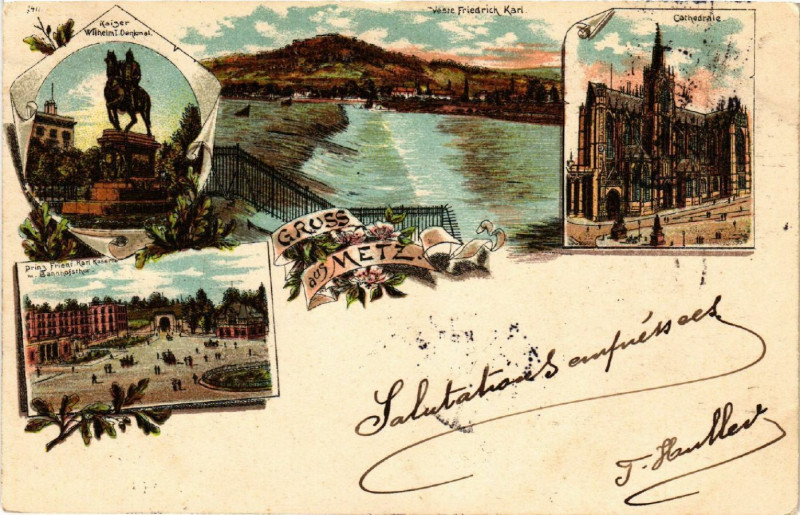 Kaiser
Wilhelm I. Denkmal.
Veste Friedrich Karl.
Cathedrale
GRUSS
aus METZ.
Prinz Friedr. Karl Kaserne
u. Bahnhofsthor.
Salutations empressées